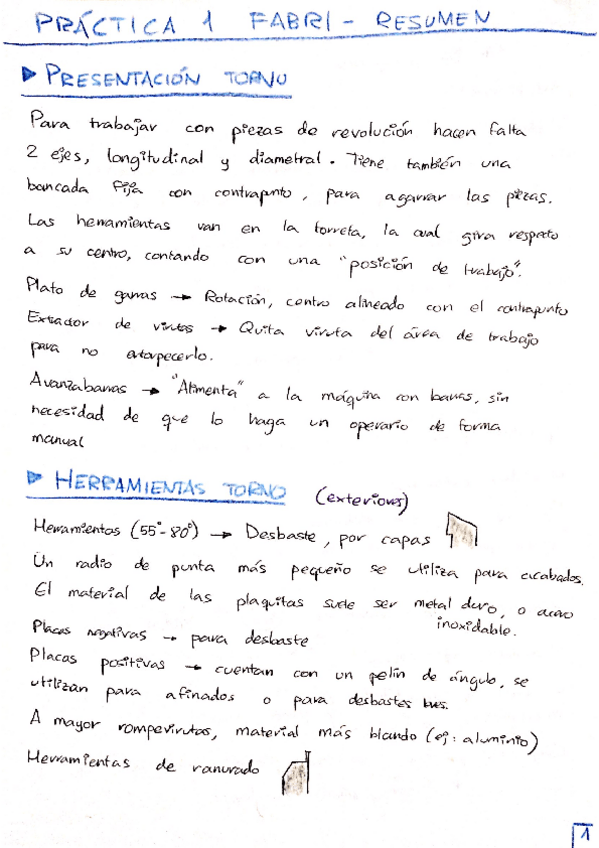 PRÁCTICA 1 FABRI - RESUMEN
▶ PRESENTACIÓN TORNO
Para trabajar con piezas de revolución hacen falta
2 ejes, longitudinal y diametral. Tiene también una
bancada fija con contrapunto, para agarrar las piezas.
Las herramientas van en la torreta, la cual gira respecto
a su centro, contando con una "posición de trabajo".
Plato de garras → Rotación, centro alineado con el contrapunto
Extractor de virutas → Quita viruta del área de trabajo
para no entorpecerlo.
Avanzabarras → "Alimenta" a la máquina con barras, sin
necesidad de que lo haga un operario de forma
manual
▶ HERRAMIENTAS TORNO (exteriores)
Herramientas (55°-80°) → Desbaste, por capas
Un radio de punta más pequeño se utiliza para acabados.
El material de las plaquitas suele ser metal duro, o acero
inoxidable.
Placas negativas → para desbaste
Placas positivas → cuentan con un pelín de ángulo, se
utilizan para afinados o para desbastes
A mayor rompevirutas, material más blando (ej: aluminio)
Herramientas de ranurado
1